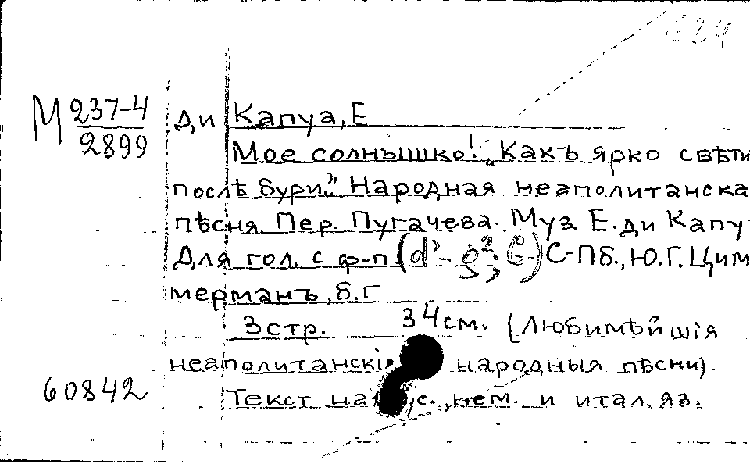 М 237-4
2899
ди Капуа, Е
Мое солнышко! „Какъ ярко свѣти
послѣ бури..." Народная неаполитанска
пѣсня Пер. Пугачева. Муз. Е. ди Капу
Для гол. с ф-п (d¹- g²; G) С-Пб., Ю.Г. Цим
мерманъ, б.г
3 стр. 34 см. (Любимѣйшія
неаполитанскі народныя пѣсни).
60842
Текст на с., нем. и итал. яз.